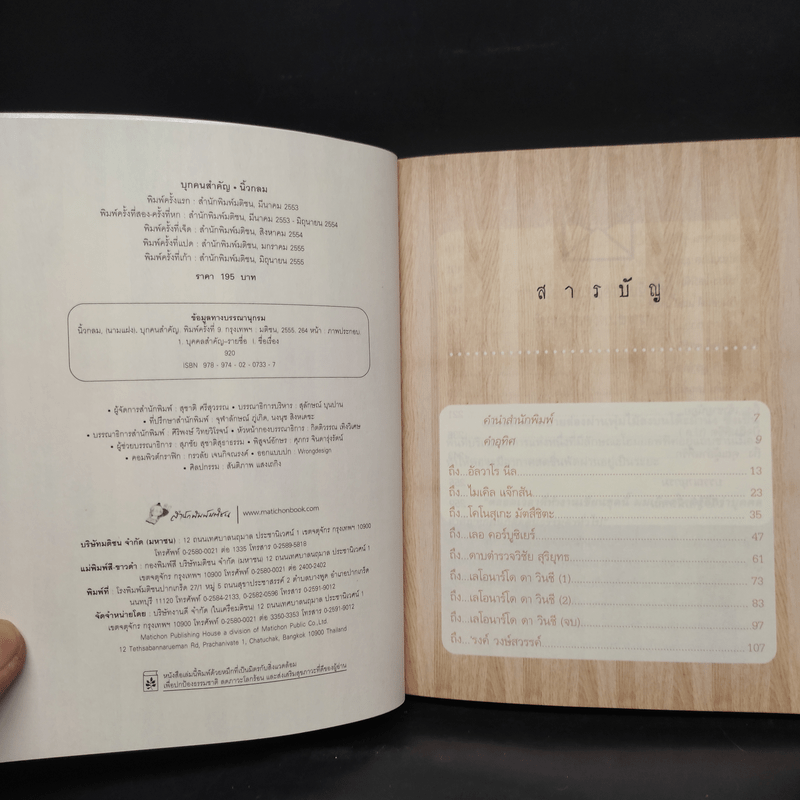 บุกคนสำคัญ • นิ้วกลม
พิมพ์ครั้งแรก : สำนักพิมพ์มติชน, มีนาคม 2553
พิมพ์ครั้งที่สอง-ครั้งที่หก : สำนักพิมพ์มติชน, มีนาคม 2553 - มิถุนายน 2554
พิมพ์ครั้งที่เจ็ด : สำนักพิมพ์มติชน, สิงหาคม 2554
พิมพ์ครั้งที่แปด : สำนักพิมพ์มติชน, มกราคม 2555
พิมพ์ครั้งที่เก้า : สำนักพิมพ์มติชน, มิถุนายน 2555
ราคา 195 บาท
ข้อมูลทางบรรณานุกรม
นิ้วกลม, (นามแฝง). บุกคนสำคัญ. พิมพ์ครั้งที่ 9. กรุงเทพฯ : มติชน, 2555. 264 หน้า : ภาพประกอบ.
1. บุคคลสำคัญ-รายชื่อ I. ชื่อเรื่อง
920
ISBN 978 - 974 - 02 - 0733 - 7
• ผู้จัดการสำนักพิมพ์ : สุชาติ ศรีสุวรรณ • บรรณาธิการบริหาร : สุลักษณ์ บุนปาน
• ที่ปรึกษาสำนักพิมพ์ : จุฬาลักษณ์ ภู่เกิด, นงนุช สิงหเดชะ
• บรรณาธิการสำนักพิมพ์ : ศิริพงษ์ วิทยวิโรจน์ • หัวหน้ากองบรรณาธิการ : กิตติวรรณ เทิงวิเศษ
• ผู้ช่วยบรรณาธิการ : สุภชัย สุชาติสุธาธรรม • พิสูจน์อักษร : ศุภกร จินดารุ่งรัตน์
• คอมพิวต์กราฟิก : กรวลัย เจนกิจณรงค์ • ออกแบบปก : Wrongdesign
• ศิลปกรรม : สันติภาพ แสงเถกิง
สำนักพิมพ์มติชน | www.matichonbook.com
บริษัทมติชน จำกัด (มหาชน) : 12 ถนนเทศบาลนฤมาล ประชานิเวศน์ 1 เขตจตุจักร กรุงเทพฯ 10900
โทรศัพท์ 0-2580-0021 ต่อ 1335 โทรสาร 0-2589-5818
แม่พิมพ์สี-ขาวดำ : กองพิมพ์สี บริษัทมติชน จำกัด (มหาชน) 12 ถนนเทศบาลนฤมาล ประชานิเวศน์ 1
เขตจตุจักร กรุงเทพฯ 10900 โทรศัพท์ 0-2580-0021 ต่อ 2400-2402
พิมพ์ที่ : โรงพิมพ์มติชนปากเกร็ด 27/1 หมู่ 5 ถนนสุขาประชาสรรค์ 2 ตำบลบางพูด อำเภอปากเกร็ด
นนทบุรี 11120 โทรศัพท์ 0-2584-2133, 0-2582-0596 โทรสาร 0-2591-9012
จัดจำหน่ายโดย : บริษัทงานดี จำกัด (ในเครือมติชน) 12 ถนนเทศบาลนฤมาล ประชานิเวศน์ 1
เขตจตุจักร กรุงเทพฯ 10900 โทรศัพท์ 0-2580-0021 ต่อ 3350-3353 โทรสาร 0-2591-9012
Matichon Publishing House a division of Matichon Public Co.,Ltd.
12 Tethsabannarueman Rd, Prachanivate 1, Chatuchak, Bangkok 10900 Thailand
หนังสือเล่มนี้พิมพ์ด้วยหมึกที่เป็นมิตรกับสิ่งแวดล้อม
เพื่อปกป้องธรรมชาติ ลดภาวะโลกร้อน และส่งเสริมสุขภาวะที่ดีของผู้อ่าน
สารบัญ
คำนำสำนักพิมพ์ 7
คำอุทิศ 9
ถึง...อัลวาโร นีล 13
ถึง...ไมเคิล แจ๊กสัน 23
ถึง...โคโนสุเกะ มัตสึชิตะ 35
ถึง...เลอ คอร์บูซิเยร์ 47
ถึง...ดาบตำรวจวิชัย สุริยุทธ 61
ถึง...เลโอนาร์โด ดา วินชี (1) 73
ถึง...เลโอนาร์โด ดา วินชี (2) 83
ถึง...เลโอนาร์โด ดา วินชี (จบ) 97
ถึง...'รงค์ วงษ์สวรรค์ 107